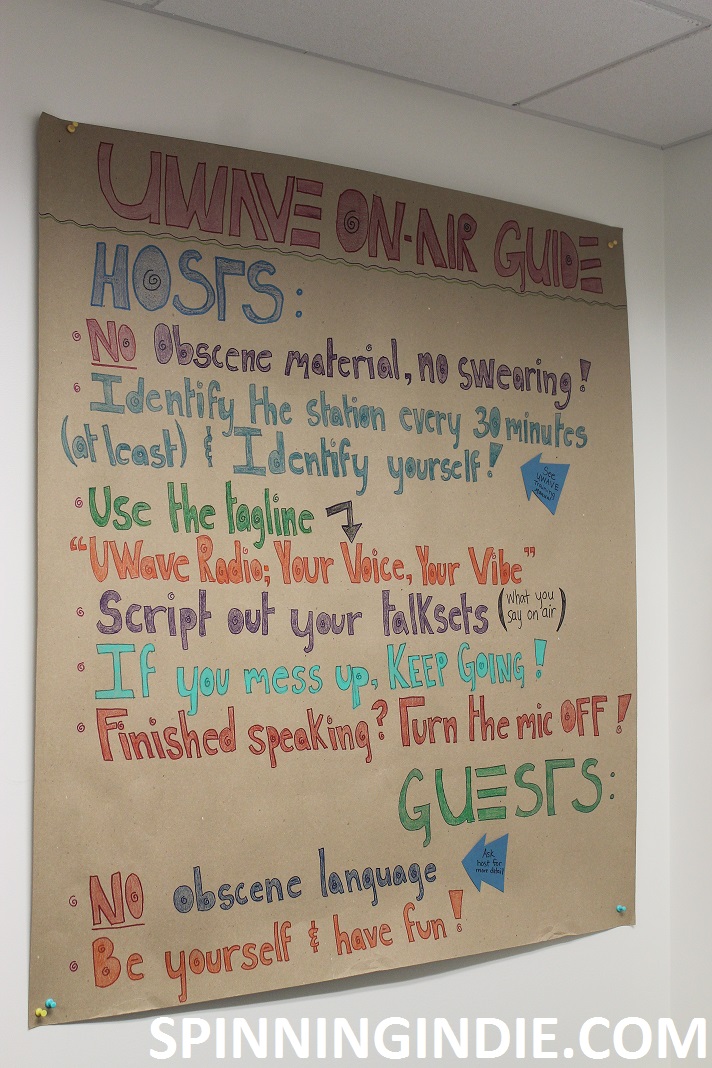 UWAVE ON-AIR GUIDE
HOSTS:
• NO Obscene material, no swearing!
• Identify the station every 30 minutes
(at least) & Identify yourself!
See
UWAVE
Training
• Use the tagline
"UWave Radio; Your Voice, Your Vibe"
• Script out your talksets (what you
say on air)
• If you mess up, KEEP GOING!
• Finished speaking? Turn the mic OFF!
GUESTS:
Ask
host for
more detail
• NO obscene language
• Be yourself & have fun!
SPINNINGINDIE.COM